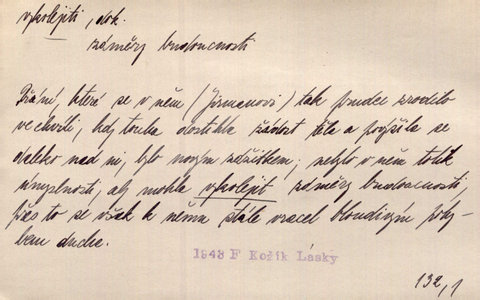 vykolejiti, dok.
záměry budoucnosti
Přání, které se v něm (Jirmanovi) tak prudce zrodilo
ve chvíli, kdy touha dostihla žádost těla a povýšila se
daleko nad ni, bylo novým zážitkem; nebylo v něm tolik
úmyslnosti, aby mohla vykolejit záměry budoucnosti,
přes to se však k němu stále vracel bloudivým pohy-
bem ducha.
1948 F Kožík Lásky
132,1